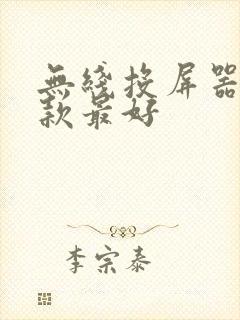 無綫投屏器
款最好
李宗泰